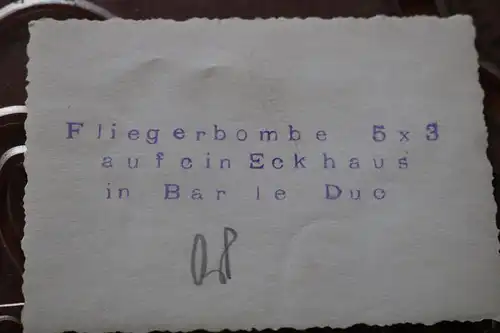 Fliegerbombe 5x3
auf ein Eckhaus
in Bar le Duc